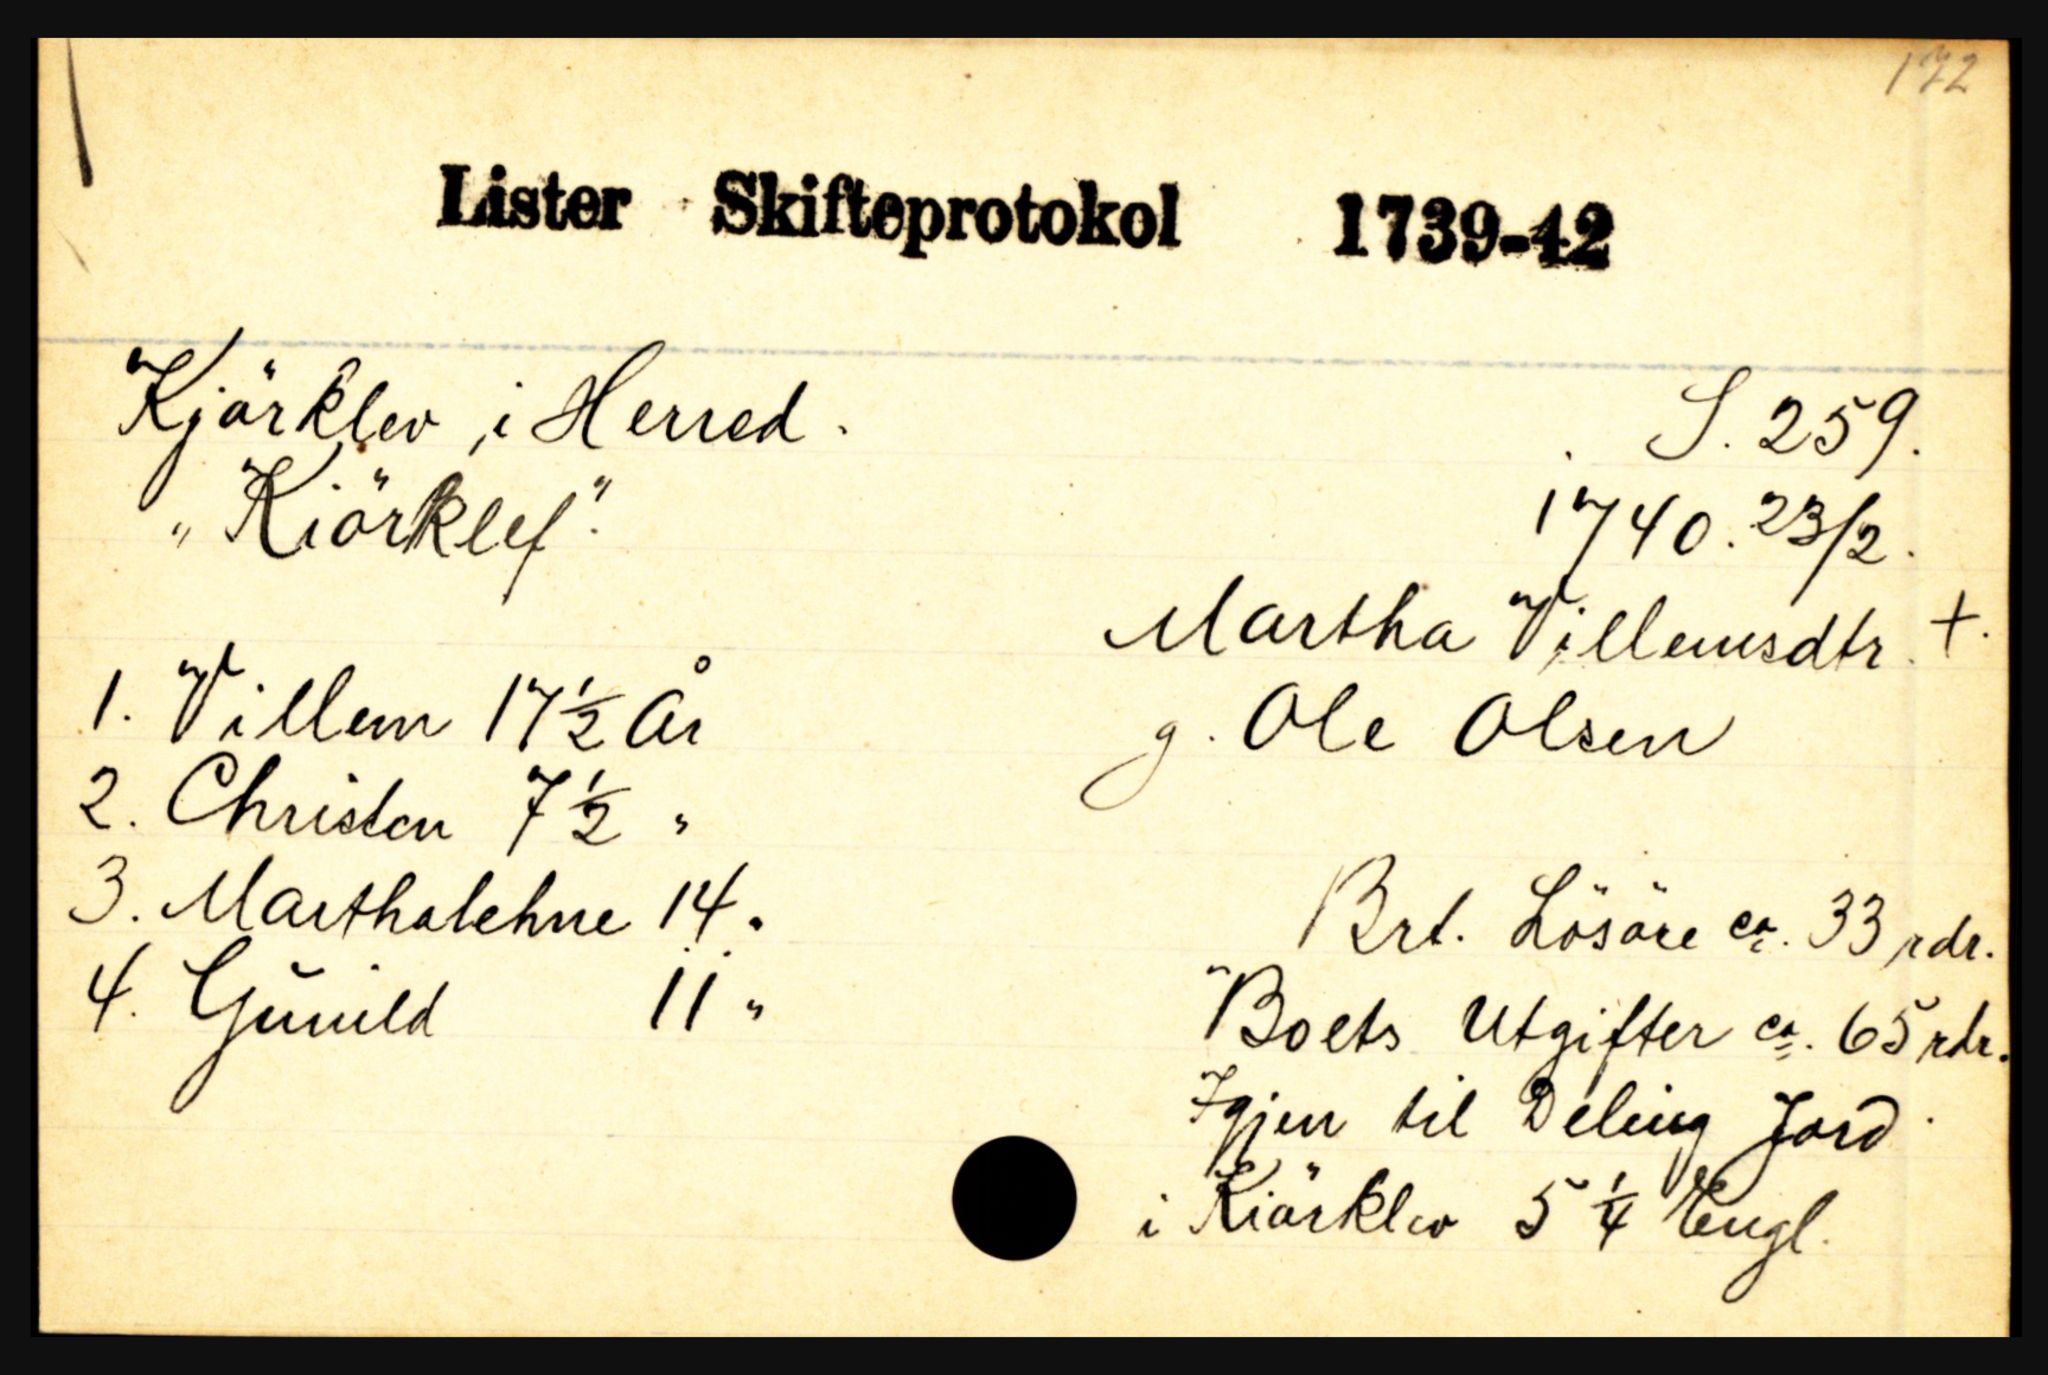 172
Lister Skifteprotokol 1739-42
Kjörklev i Herred.
S. 259.
„Kiörklef".
1740. 23/2.
Martha Villemsdtr. +.
g. Ole Olsen
1. Villem 17 1/2 År
2. Christen 7 1/2 "
3. Marthalehne 14 "
4. Gŭnild 11 "
Brt. Lösöre ca. 33 rdr.
Boets Utgifter ca. 65 rdr.
Igjen til Deling Jord
i Kiörklev 5 1/4 Engl.